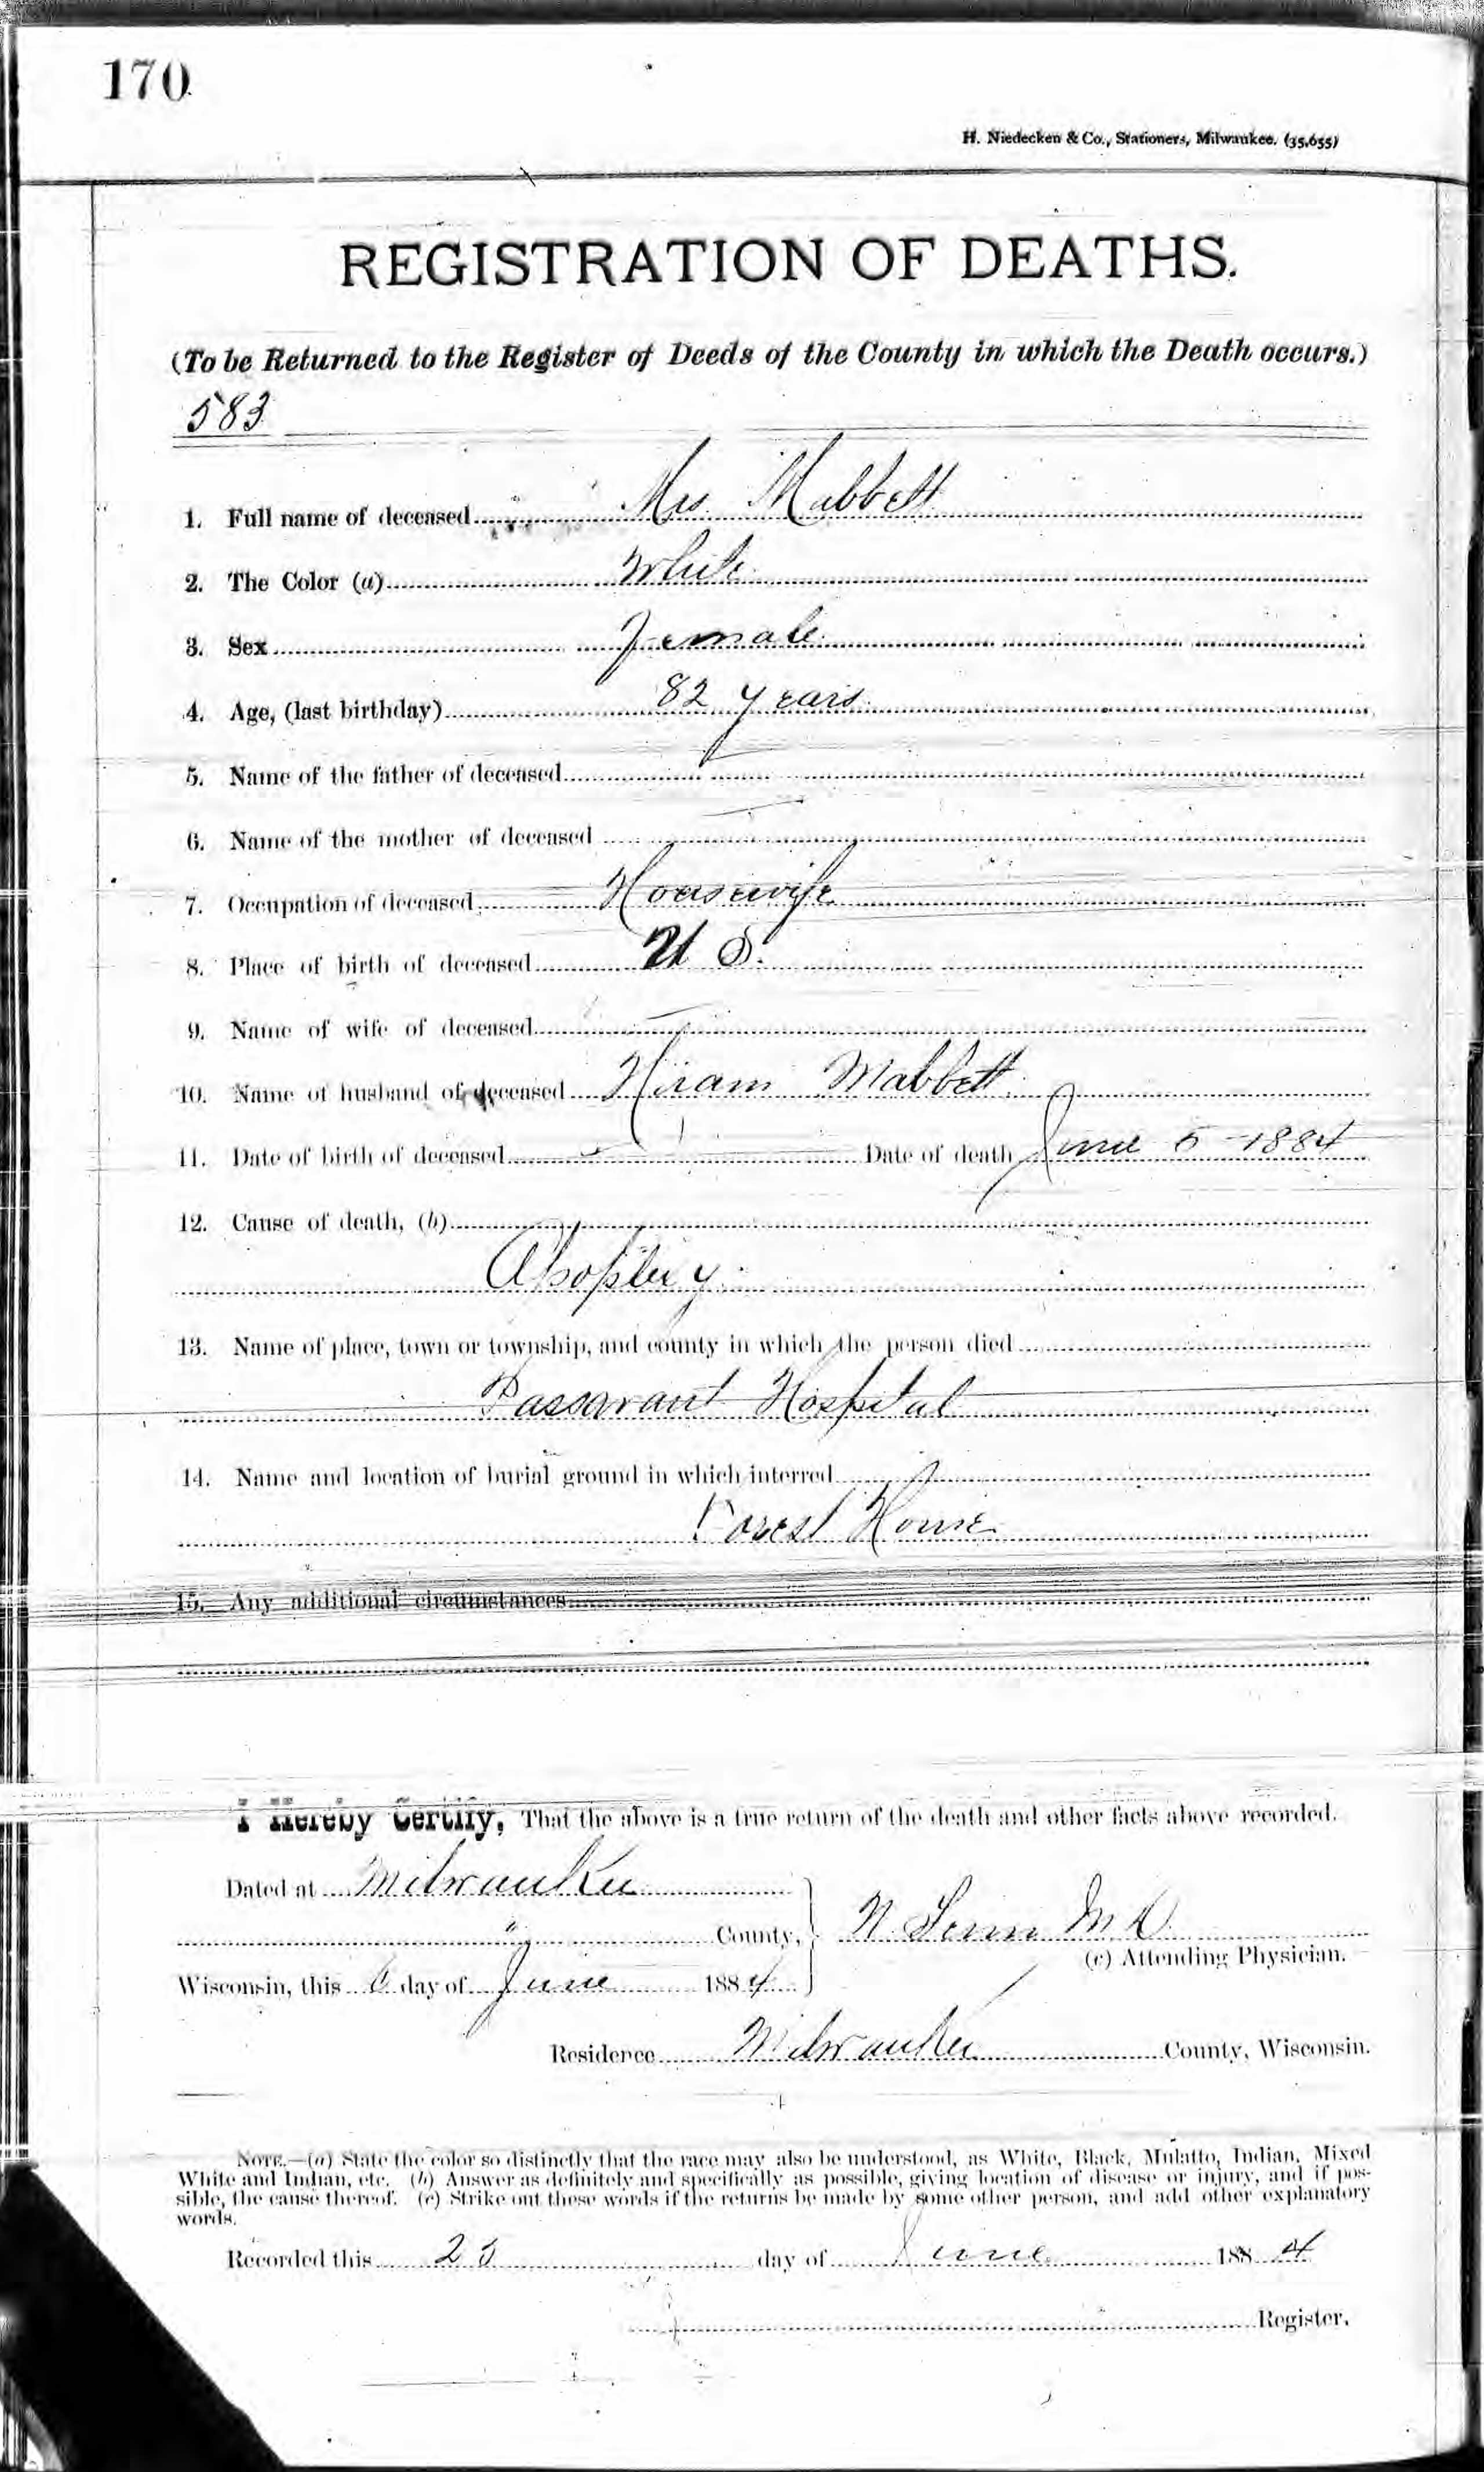 170
H. Niedecken & Co., Stationers, Milwaukee. (35,655)
REGISTRATION OF DEATHS.
(To be Returned to the Register of Deeds of the County in which the Death occurs.)
583
1. Full name of deceased Mrs Mabbett
2. The Color (a) White
3. Sex Female
4. Age, (last birthday) 82 years
5. Name of the father of deceased
6. Name of the mother of deceased
7. Occupation of deceased Housewife
8. Place of birth of deceased U S.
9. Name of wife of deceased
10. Name of husband of deceased Hiram Mabbett
11. Date of birth of deceased Date of death June 5 1884
12. Cause of death, (b)
Apoplexy
13. Name of place, town or township, and county in which the person died
Passavant Hospital
14. Name and location of burial ground in which interred
Forest Home
15. Any additional circumstances
I Hereby Certify, That the above is a true return of the death and other facts above recorded.
Dated at Milwaukee
" County, N. Senn M D.
(c) Attending Physician.
Wisconsin, this 6 day of June 1884
Residence Milwaukee County, Wisconsin.
NOTE.—(a) State the color so distinctly that the race may also be understood, as White, Black, Mulatto, Indian, Mixed
White and Indian, etc. (b) Answer as definitely and specifically as possible, giving location of disease or injury, and if pos-
sible, the cause thereof. (c) Strike out these words if the returns be made by some other person, and add other explanatory
words.
Recorded this 23 day of June 1884
Register.